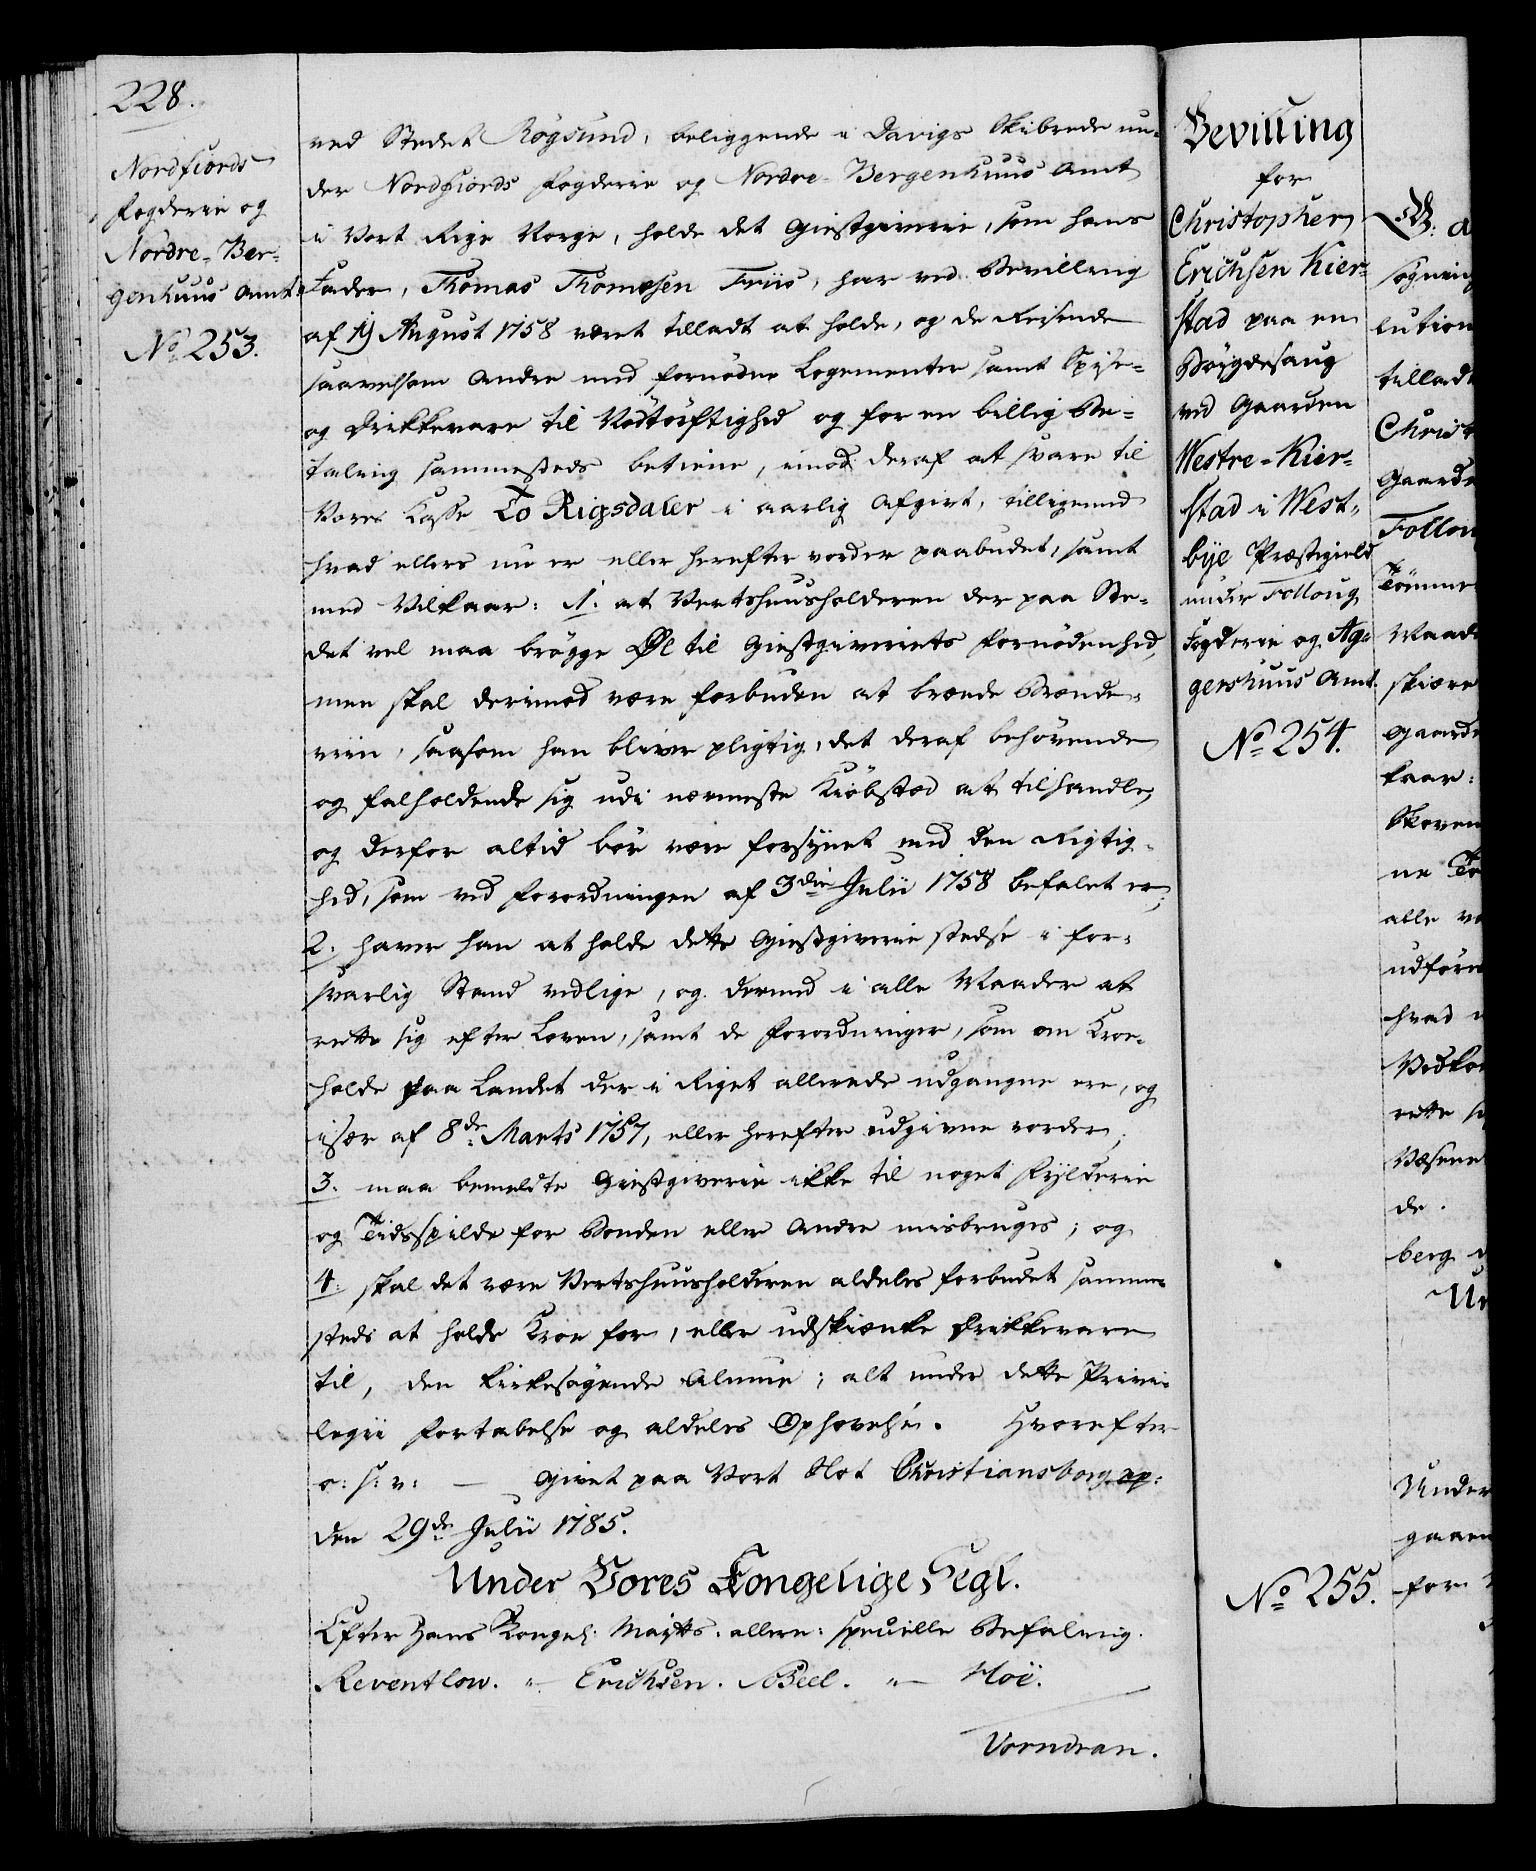 228.
Nordfiords
Fogderie og
Nordre-Ber-
genhuus Amt.
No 253.
ved Stedet Rögsund, beliggende i Davigs Skibrede un-
der Nordfiords Fogderie og Nordre-Bergenhuus Amt
i Vort Rige Norge, holde det Giestgiverie, som hans
Fader, Thomas Thomesen Friis, har ved Bevilling
af 19 August 1758 været tilladt at holde, og de Reisende
saavelsom Andre med fornødne Logementer samt Spise-
og Drikkevare til Nødtörftighed og for en billig Be-
taling sammesteds betiene, imod deraf at svare til
Vores Kasse To Rigsdaler i aarlig Afgivt, tilligemed
hvad ellers nu er eller herefter vorder paabudet, samt
med Vilkaar: 1. at Vertshuusholderen der paa Ste-
det vel maa brögge Øl til Giestgiveriets Fornödenhed,
men skal derimod være forbuden at brænde Brænde-
viin, saasom han bliver pligtig, det deraf behövende
og falholdende sig udi nærmeste Kiöbstæd at tilhandle,
og derfor altid bör være forsynet med den Rigtig-
hed, som ved Forordningen af 3die Julii 1758 befalet er;
2. haver han at holde dette Giestgiverie stedse i for-
svarlig Stand vedlige, og dermed i alle Maader at
rette sig efter Loven, samt de Forordninger, som om Kroe-
holde paa Landet der i Riget allerede udgangne ere, og
især af 8de Marts 1757, eller herefter udgivne vorder;
3. maa bemeldte Giestgiverie ikke til noget Fylderie
og Tidsspilde for Bonden eller Andre misbruges; og
4. skal det være Vertshuusholderen aldeles forbudet sammes-
steds at holde Kroe for, eller udskiænke Drikkevare
til, den kirkesøgende Almue; alt under dette Privi-
legii Fortabelse og aldeles Ophævelse. Hvorefter
o: s: v: — Givet paa Vort Slot Christiansborg
den 29de Julii 1785.
Under Vores Kongelige Segl.
Efter Hans Kongel: Maytts. allern: specielle Befaling.
Reventlow. " Erichsen. Beel. " Hoë.
Vorndran.
Bevilling
for
Christopher
Erichsen Kier-
stad paa en
Böygdesaug
ved Gaarden
Westre-Kier-
stad i West-
bye Præstegield
under Folloug
Fogderie og Ag-
gershuus Amt.
No 254.
No 255.
sögning
lution
tilladt
Christ
Gaarde
Follou
Tömmer
Maade
skiære
Gaarde
kaar:
Skoven
ne
alle
udföre
hvad
Vedkom
rette
Væsene
de.
berg
Un
Under
gaaen
for